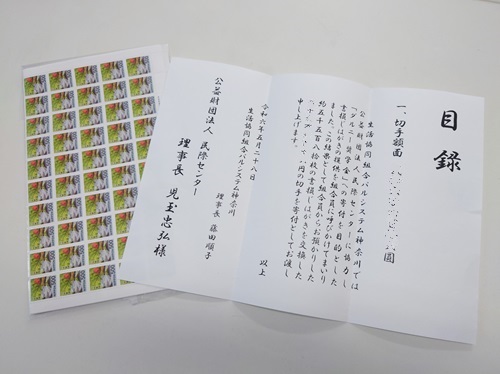 目録
一、切手額面 圓
生活協同組合パルシステム神奈川では
公益財団法人 民際センターに協力し
「ダルニー奨学金」への寄付を目的とした
書損じはがきの提供を組合員に呼びかけてまいり
ました。この結果として組合員からお預かりした
約五千五百八拾枚の書損じはがきを交換した
円の切手を寄付としてお渡し
申し上げます。
以上
令和六年五月二十八日
生活協同組合パルシステム神奈川
理事長 藤田順子
公益財団法人 民際センター
理事長 児玉忠弘様